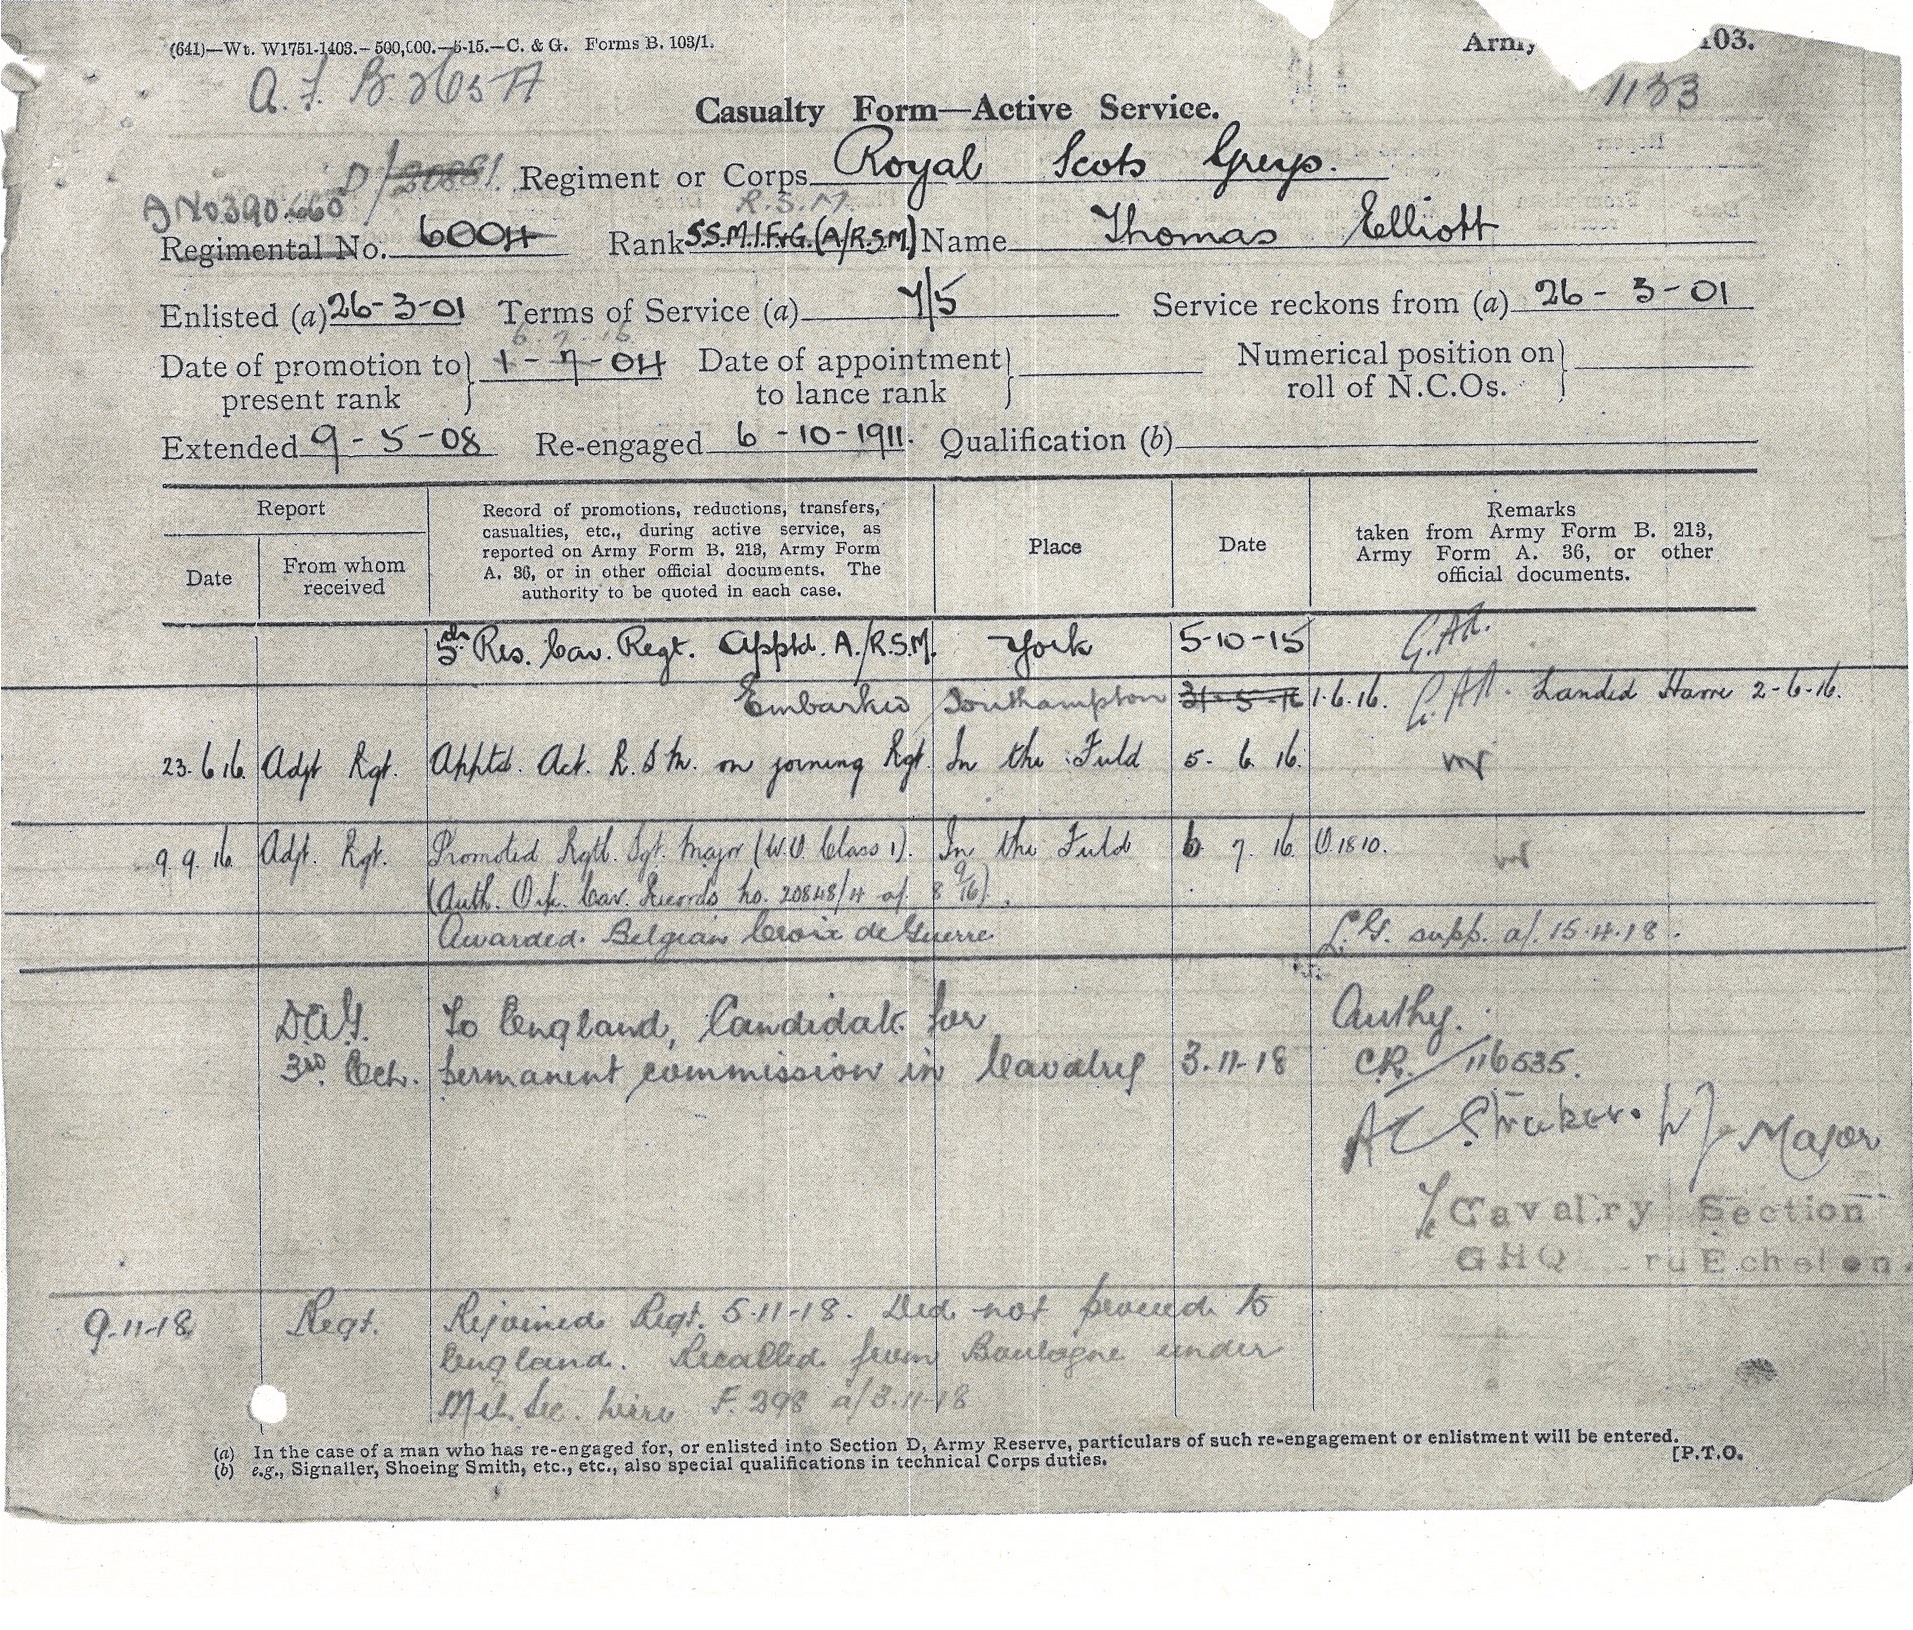 (641)—Wt. W1751-1403.—500,000.—5-15.—C. & G. Forms B. 103/1.
Army 103.
A. F. B. 265 A
1133
Casualty Form—Active Service.
D/20881. Regiment or Corps Royal Scots Greys.
A No 390.660 R.S.M.
Regimental No. 6004 Rank S.S.M.I.F&G.(A/R.S.M.) Name Thomas Elliott
Enlisted (a) 26-3-01 Terms of Service (a) 7/5 Service reckons from (a) 26-3-01
6.7.16
Date of promotion to present rank 1-7-04 Date of appointment to lance rank Numerical position on roll of N.C.Os.
Extended 9-5-08 Re-engaged 6-10-1911. Qualification (b)
Report
Date
From whom received
Record of promotions, reductions, transfers, casualties, etc., during active service, as reported on Army Form B. 213, Army Form A. 36, or in other official documents. The authority to be quoted in each case.
Place
Date
Remarks taken from Army Form B. 213, Army Form A. 36, or other official documents.
5th Res. Cav. Regt. Apptd. A./R.S.M. York 5-10-15
Embarked Southampton 31-5-16 1.6.16. Landed Havre 2-6-16.
23.6.16. Adjt Rgt. Apptd. Act. R.S.M. on joining Rgt. In the Field 5.6.16.
9.9.16. Adjt. Rgt. Promoted Rgtl. Sgt. Major (W.O. Class 1). In the Field 6 7 16 O.1810.
(Auth. O i/c. Cav. Records No. 20848/4 d/. 8 9/16).
Awarded. Belgian Croix de Guerre. L.G. supp. d/. 15.4.18.
D.A.G. To England, Candidate for Authy.
3rd Ech. permanent commission in Cavalry 3.11.18 C.R./116535.
Major
Cavalry Section
GHQ rd Echelon.
9-11-18 Regt. Rejoined Regt. 5-11-18. Did not proceed to
England. Recalled from Boulogne under
Mil. Sec. wire F. 298 d/3.11-18
(a) In the case of a man who has re-engaged for, or enlisted into Section D, Army Reserve, particulars of such re-engagement or enlistment will be entered.
(b) e.g., Signaller, Shoeing Smith, etc., etc., also special qualifications in technical Corps duties.
[P.T.O.